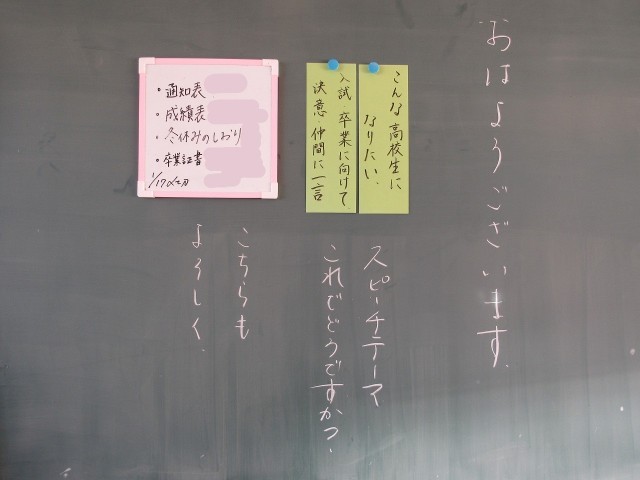 おはようございます。
こんな高校生に
なりたい.
入試 卒業に向けて
決意・仲間に一言
スピーチテーマ
これでどうですかっ.
こちらも
よろしく.
・通知表
・成績表
・冬休みのしおり
・卒業証書
1/17〆切